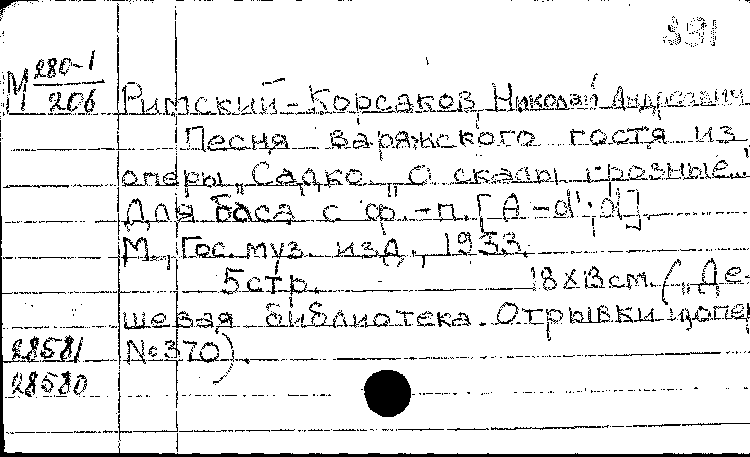 391
М 280-1/206
Римский-Корсаков, Николай Андреевич
Песня варяжского гостя из
оперы „Садко". „О скалы грозные..."
Для баса с ф.-п. [A-d';d].
М., Гос. муз. изд., 1933.
5 стр. 18х13 см. („Де-
шевая библиотека. Отрывки из опер
28581 №370).
28580